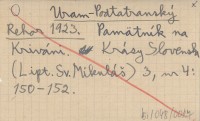 Uram-Podtatranský
Rehor 1923. Pamätník na
Kriváni. Krásy Slovenska
(Lipt. Sv. Mikuláš) 3, nr 4:
150-152.